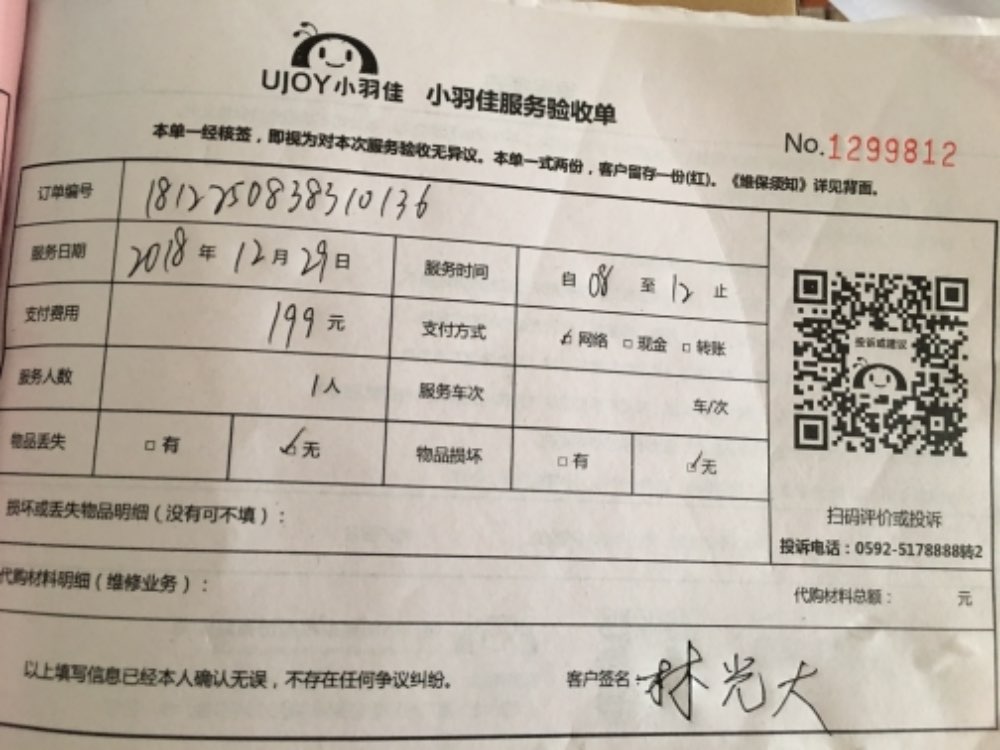 UJOY小羽佳 小羽佳服务验收单
本单一经核签，即视为对本次服务验收无异议。本单一式两份，客户留存一份(红)。《维保须知》详见背面。
No.1299812
订单编号 1812250838310136
服务日期 2018年12月29日 服务时间 自08至12止
支付费用 199元 支付方式 ☑网络 □现金 □转账
服务人数 1人 服务车次 车/次
物品丢失 □有 ☑无 物品损坏 □有 ☑无
投诉或建议
扫码评价或投诉
投诉电话：0592-5178888转2
损坏或丢失物品明细（没有可不填）：
代购材料明细（维修业务）： 代购材料总额： 元
以上填写信息已经本人确认无误，不存在任何争议纠纷。 客户签名：林光大